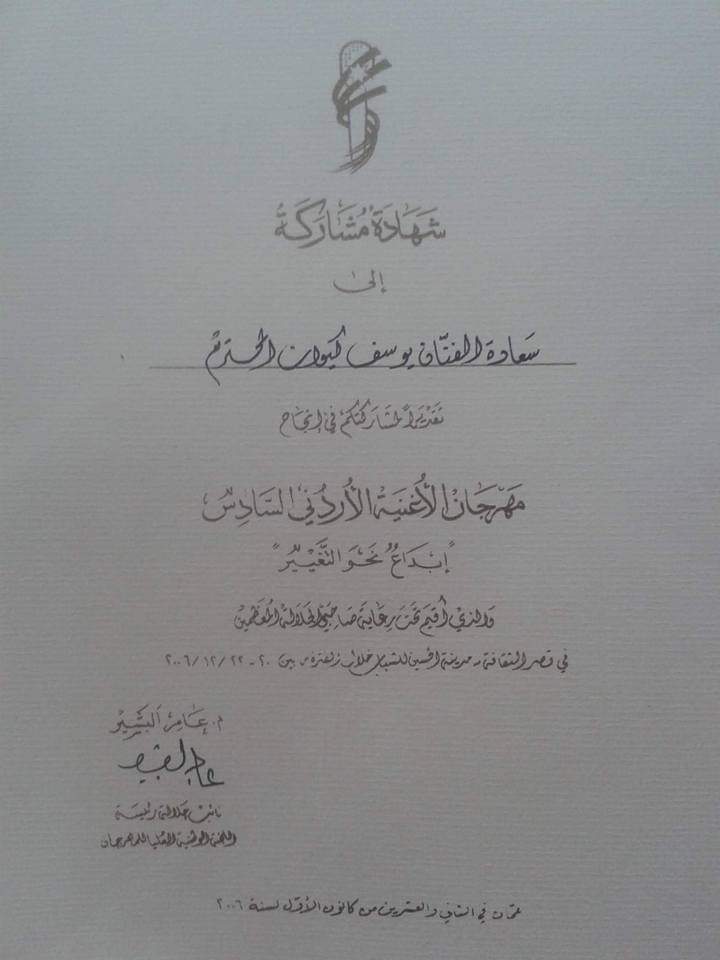 شَهَادَة مُشَارَكَة
إلى
سَعادة الفنّان يوسف كيوان المحترم
تقديراً لمشاركتكم في إنجاح
مَهْرجَان الأُغنيَة الأُردُني السَّادِسْ
"إبدَاعٌ نحَو التَّغْيير"
وَالذي أُقيمَ تحَتَ رِعَايَة صَاحِبيَ الجَلالة المُعَظَّمين
في قصر الثقافة - مدينة الحسين للشباب خلال الفترة من بين ٢٠ - ٢٢ / ١٢ / ٢٠٠٦
م. عَامِر البَشيْر
نائب جلالة رئيسة
اللجنة الوطنية العُليا للمهرجان
عمّان في الثاني والعشرين من كانون الأوّل لسنة ٢٠٠٦